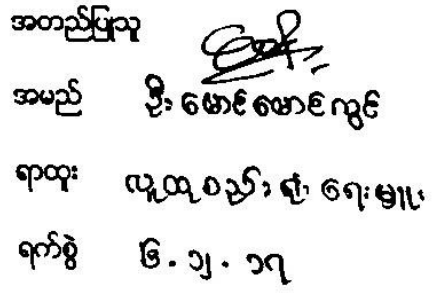 အတည်ပြုသူ
အမည် ဦးမောင်မောင်ကွင်
ရာထူး လူထုစည်းရုံးရေးမှူး
ရက်စွဲ ၆.၁၂.၁၇